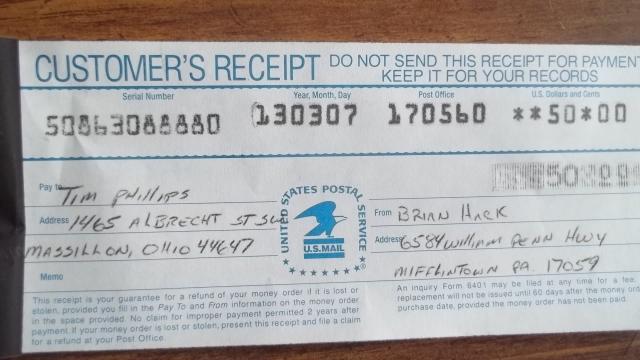 CUSTOMER'S RECEIPT
DO NOT SEND THIS RECEIPT FOR PAYMENT
KEEP IT FOR YOUR RECORDS
Serial Number
Year, Month, Day
Post Office
U.S. Dollars and Cents
50863088880
130307
170560
**50*00
Pay to
Tim Phillips
Address 1465 ALBRECHT ST SW
MASSILLON, OHIO 44647
Memo
UNITED STATES POSTAL SERVICE
U.S.MAIL
From BRIAN HACK
Address 6584 William PENN HWY
MIFFLINTOWN PA. 17059
This receipt is your guarantee for a refund of your money order if it is lost or
stolen, provided you fill in the Pay To and From information on the money order
in the space provided. No claim for improper payment permitted 2 years after
payment. If your money order is lost or stolen, present this receipt and file a claim
for a refund at your Post Office.
An inquiry Form 6401 may be filed at any time for a fee.
replacement will not be issued until 60 days after the money order
purchase date, provided the money order has not been paid.